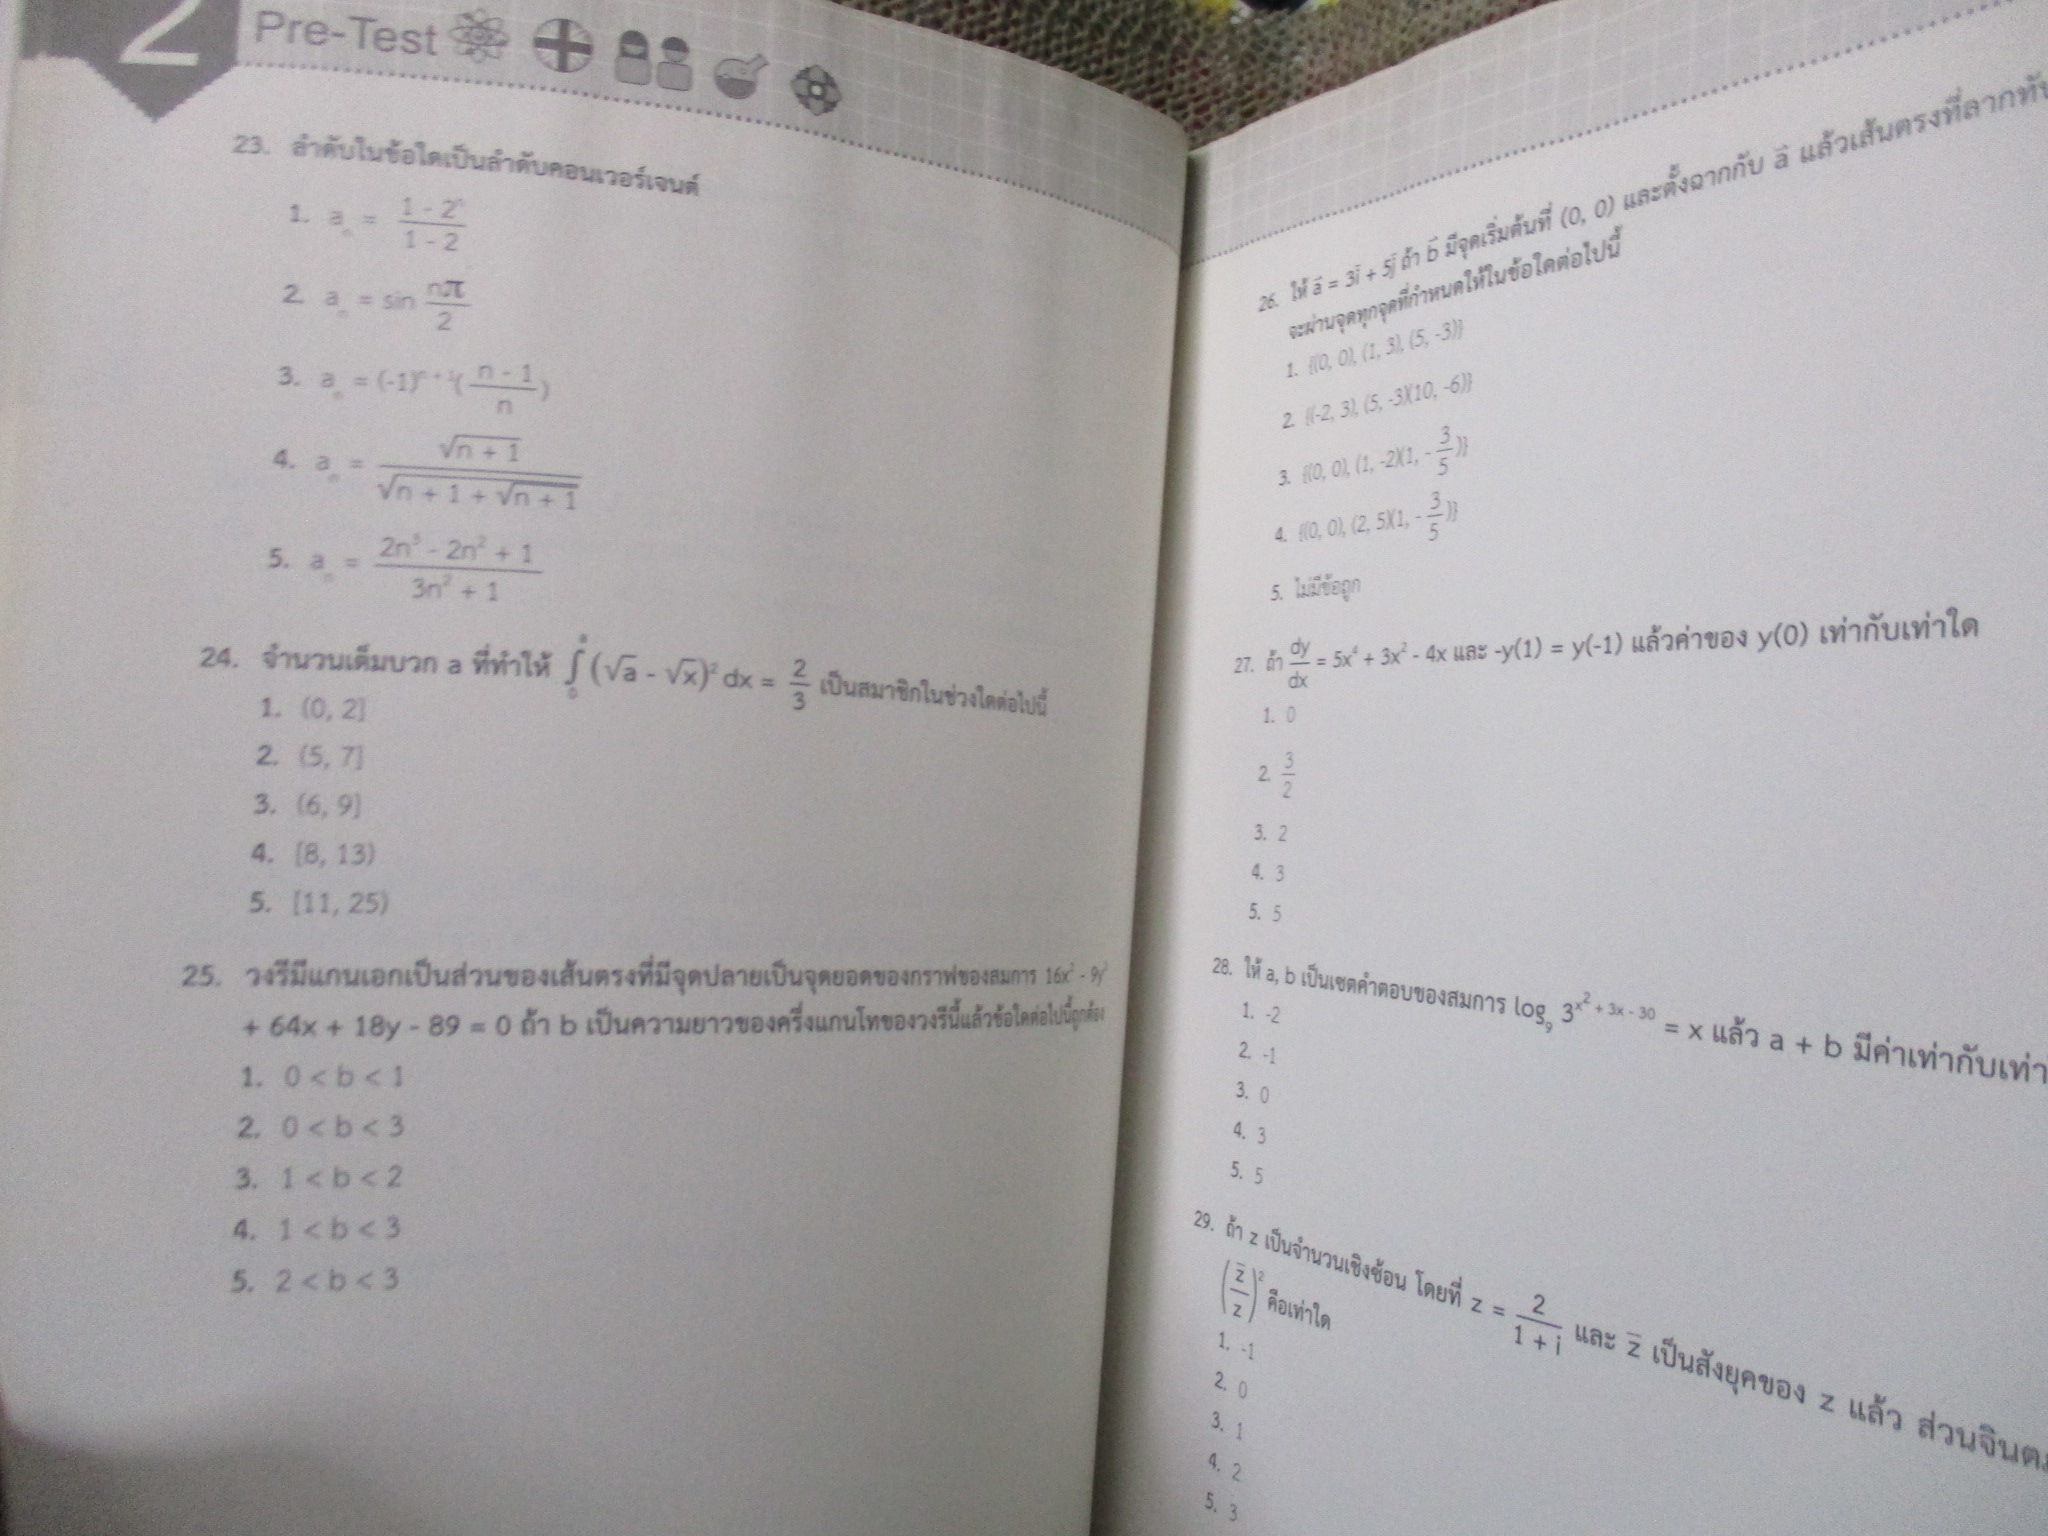 2 Pre-Test
23. ลำดับในข้อใดเป็นลำดับคอนเวอร์เจนต์
1. aₙ = (1 - 2ⁿ)/(1 - 2)
2. aₙ = sin nπ/2
3. aₙ = (-1)ⁿ⁺¹((n - 1)/n)
4. aₙ = √(n + 1)/√(n + 1 + √(n + 1))
5. aₙ = (2n³ - 2n² + 1)/(3n² + 1)
24. จำนวนเต็มบวก a ที่ทำให้ ∫₀ᵃ (√a - √x)² dx = 2/3 เป็นสมาชิกในช่วงใดต่อไปนี้
1. (0, 2]
2. (5, 7]
3. (6, 9]
4. [8, 13)
5. [11, 25)
25. วงรีมีแกนเอกเป็นส่วนของเส้นตรงที่มีจุดปลายเป็นจุดยอดของกราฟของสมการ 16x² - 9y²
+ 64x + 18y - 89 = 0 ถ้า b เป็นความยาวของครึ่งแกนโทของวงรีนี้แล้วข้อใดต่อไปนี้ถูกต้อง
1. 0 < b < 1
2. 0 < b < 3
3. 1 < b < 2
4. 1 < b < 3
5. 2 < b < 3
26. ให้ a⃗ = 3i⃗ + 5j⃗ ถ้า b⃗ มีจุดเริ่มต้นที่ (0, 0) และตั้งฉากกับ a⃗ แล้วเส้นตรงที่ลากทับ
จะผ่านจุดทุกจุดที่กำหนดให้ในข้อใดต่อไปนี้
1. {(0, 0), (1, 3), (5, -3)}
2. {(-2, 3), (5, -3)(10, -6)}
3. {(0, 0), (1, -2)(1, -3/5)}
4. {(0, 0), (2, 5)(1, -3/5)}
5. ไม่มีข้อถูก
27. ถ้า dy/dx = 5x⁴ + 3x² - 4x และ -y(1) = y(-1) แล้วค่าของ y(0) เท่ากับเท่าใด
1. 0
2. 3/2
3. 2
4. 3
5. 5
28. ให้ a, b เป็นเซตคำตอบของสมการ log₉ 3^(x² + 3x - 30) = x แล้ว a + b มีค่าเท่ากับเท่า
1. -2
2. -1
3. 0
4. 3
5. 5
29. ถ้า z เป็นจำนวนเชิงซ้อน โดยที่ z = 2/(1 + i) และ z̄ เป็นสังยุคของ z แล้ว ส่วนจินต
(z̄/z)² คือเท่าใด
1. -1
2. 0
3. 1
4. 2
5. 3